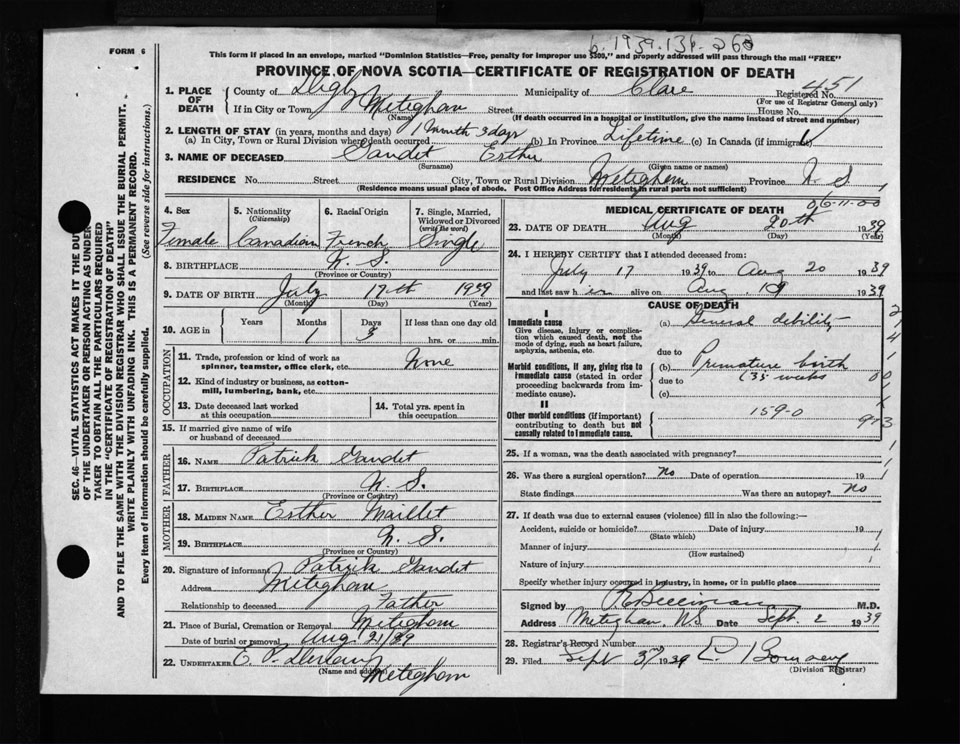 b. 1939. 131. 262
FORM 6
This form if placed in an envelope, marked "Dominion Statistics—Free, penalty for improper use $300," and properly addressed will pass through the mail "FREE"
PROVINCE OF NOVA SCOTIA—CERTIFICATE OF REGISTRATION OF DEATH
1. PLACE OF DEATH
County of Digby
Municipality of Clare
Registered No. 451
(For use of Registrar General only)
If in City or Town Meteghan Street House No.
(Name)
(If death occurred in a hospital or institution, give the name instead of street and number)
2. LENGTH OF STAY (in years, months and days) 1 month 3 days
(a) In City, Town or Rural Division where death occurred (b) In Province Lifetime (c) In Canada (if immigrant)
3. NAME OF DECEASED Gaudet Esther
(Surname) (Given name or names)
RESIDENCE No. Street City, Town or Rural Division Meteghan Province N. S.
(Residence means usual place of abode. Post Office Address for residents in rural parts not sufficient)
4. Sex
Female
5. Nationality
(Citizenship)
Canadian
6. Racial Origin
French
7. Single, Married, Widowed or Divorced
(write the word)
Single
8. BIRTHPLACE N. S.
(Province or Country)
9. DATE OF BIRTH July 17th 1939
(Month) (Day) (Year)
10. AGE in
Years Months Days If less than one day old
1 3 hrs. or min.
OCCUPATION
11. Trade, profession or kind of work as spinner, teamster, office clerk, etc. None
12. Kind of industry or business, as cotton-mill, lumbering, bank, etc.
13. Date deceased last worked at this occupation
14. Total yrs. spent in this occupation
15. If married give name of wife or husband of deceased
FATHER
16. NAME Patrick Gaudet
17. BIRTHPLACE N. S.
(Province or Country)
MOTHER
18. MAIDEN NAME Esther Maillet
19. BIRTHPLACE N. S.
(Province or Country)
20. Signature of informant Patrick Gaudet
Address Meteghan
Relationship to deceased Father
21. Place of Burial, Cremation or Removal Meteghan
Date of burial or removal Aug 21/39
22. UNDERTAKER E. P.
(Name and address) Meteghan
06-11-00
MEDICAL CERTIFICATE OF DEATH
23. DATE OF DEATH Aug 20th 1939
(Month) (Day) (Year)
24. I HEREBY CERTIFY that I attended deceased from:
July 17 1939 to Aug 20 1939
and last saw her alive on Aug. 19 1939
CAUSE OF DEATH
I
Immediate cause (a) General debility
Give disease, injury or complication which caused death, not the mode of dying, such as heart failure, asphyxia, asthenia, etc.
due to
Morbid conditions, if any, giving rise to immediate cause (stated in order proceeding backwards from immediate cause).
(b) Premature birth
due to (35 weeks
(c)
II
Other morbid conditions (if important) contributing to death but not causally related to immediate cause.
159-0
25. If a woman, was the death associated with pregnancy?
26. Was there a surgical operation? No Date of operation 19
State findings Was there an autopsy? No
27. If death was due to external causes (violence) fill in also the following:—
Accident, suicide or homicide? Date of injury 19
(State which)
Manner of injury
(How sustained)
Nature of injury
Specify whether injury occurred in industry, in home, or in public place
Signed by M.D.
Address Meteghan, N.S. Date Sept. 2 1939
28. Registrar's Record Number
29. Filed Sept 3rd 1939
(Division Registrar)
SEC. 46—VITAL STATISTICS ACT MAKES IT THE DUTY
OF THE UNDERTAKER OR PERSON ACTING AS UNDERTAKER TO OBTAIN ALL THE PARTICULARS REQUIRED
IN THE "CERTIFICATE OF REGISTRATION OF DEATH"
AND TO FILE THE SAME WITH THE DIVISION REGISTRAR WHO SHALL ISSUE THE BURIAL PERMIT.
WRITE PLAINLY WITH UNFADING INK. THIS IS A PERMANENT RECORD.
Every item of information should be carefully supplied. (See reverse side for instructions.)